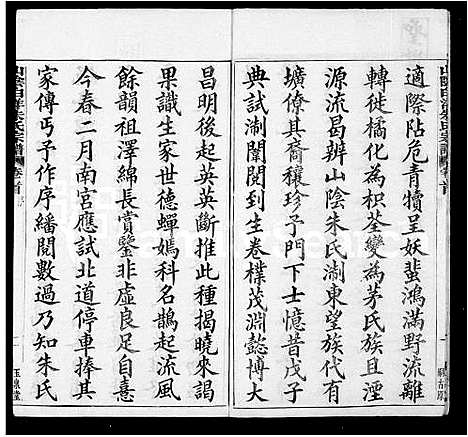 適際阽危青犢呈妖蜚鴻滿野流離
轉徙橘化為枳荃變為茅氏族且湮
源流曷辨山陰朱氏淛東望族代有
壙僚其裔穰珍子門下士憶昔戊子
典試淛闈閱到生卷樸茂淵懿博大
昌明後起英英斷推此種揭曉來謁
果識生家世德蟬嫣科名鵲起流風
餘韻祖澤綿長賞鑒非虛良足自喜
今春二月南宮應試北道停車捧其
家傳丐予作序繙閱數過乃知朱氏
卷首
玉泉堂